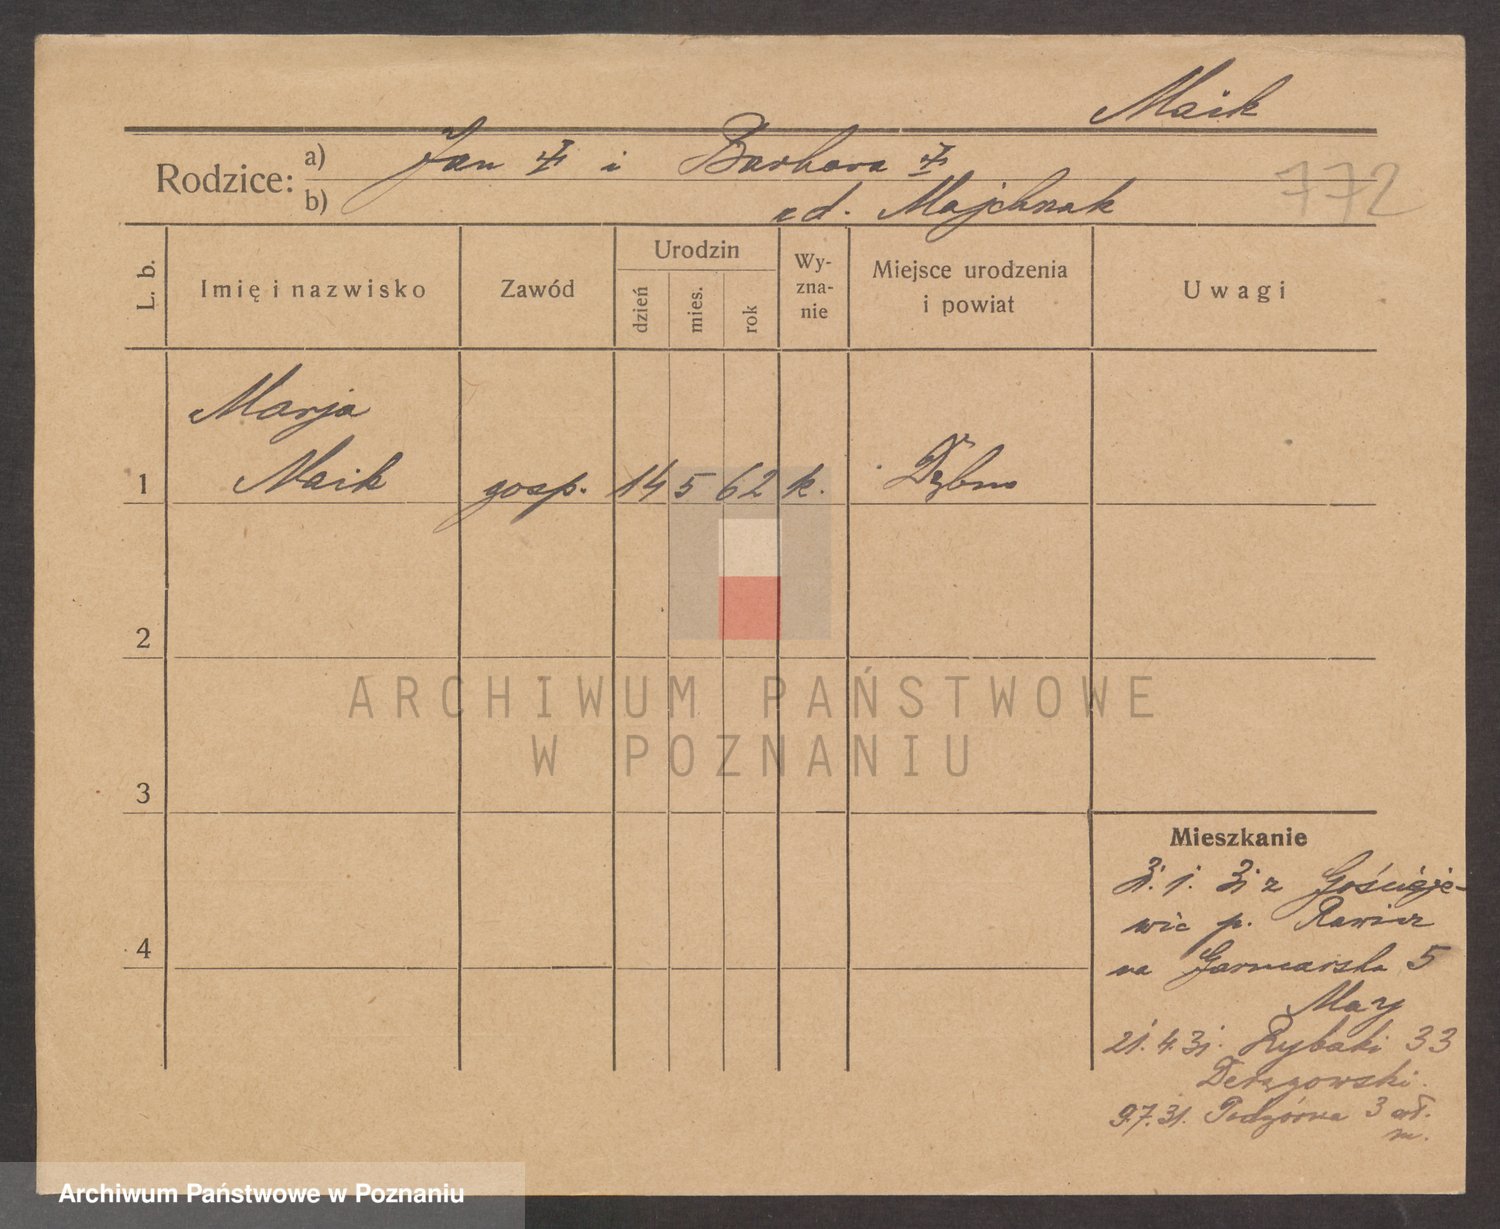 Maik
Rodzice: a) Jan i Barbara
b) zd. Majchrzak
772
L. b.
Imię i nazwisko
Zawód
Urodzin
dzień
mies.
rok
Wy-
zna-
nie
Miejsce urodzenia
i powiat
Uwagi
Marja
1 Maik gosp. 14 5 62 k. Dębno
2
3
4
ARCHIWUM PAŃSTWOWE
W POZNANIU
Mieszkanie
3. 1. 31 z Gościeje-
wic p. Rawicz
na Garncarska 5
May
21. 4. 31. Rybaki 33
Deręgowski.
9.7.31. Podgórna 3
m.
Archiwum Państwowe w Poznaniu